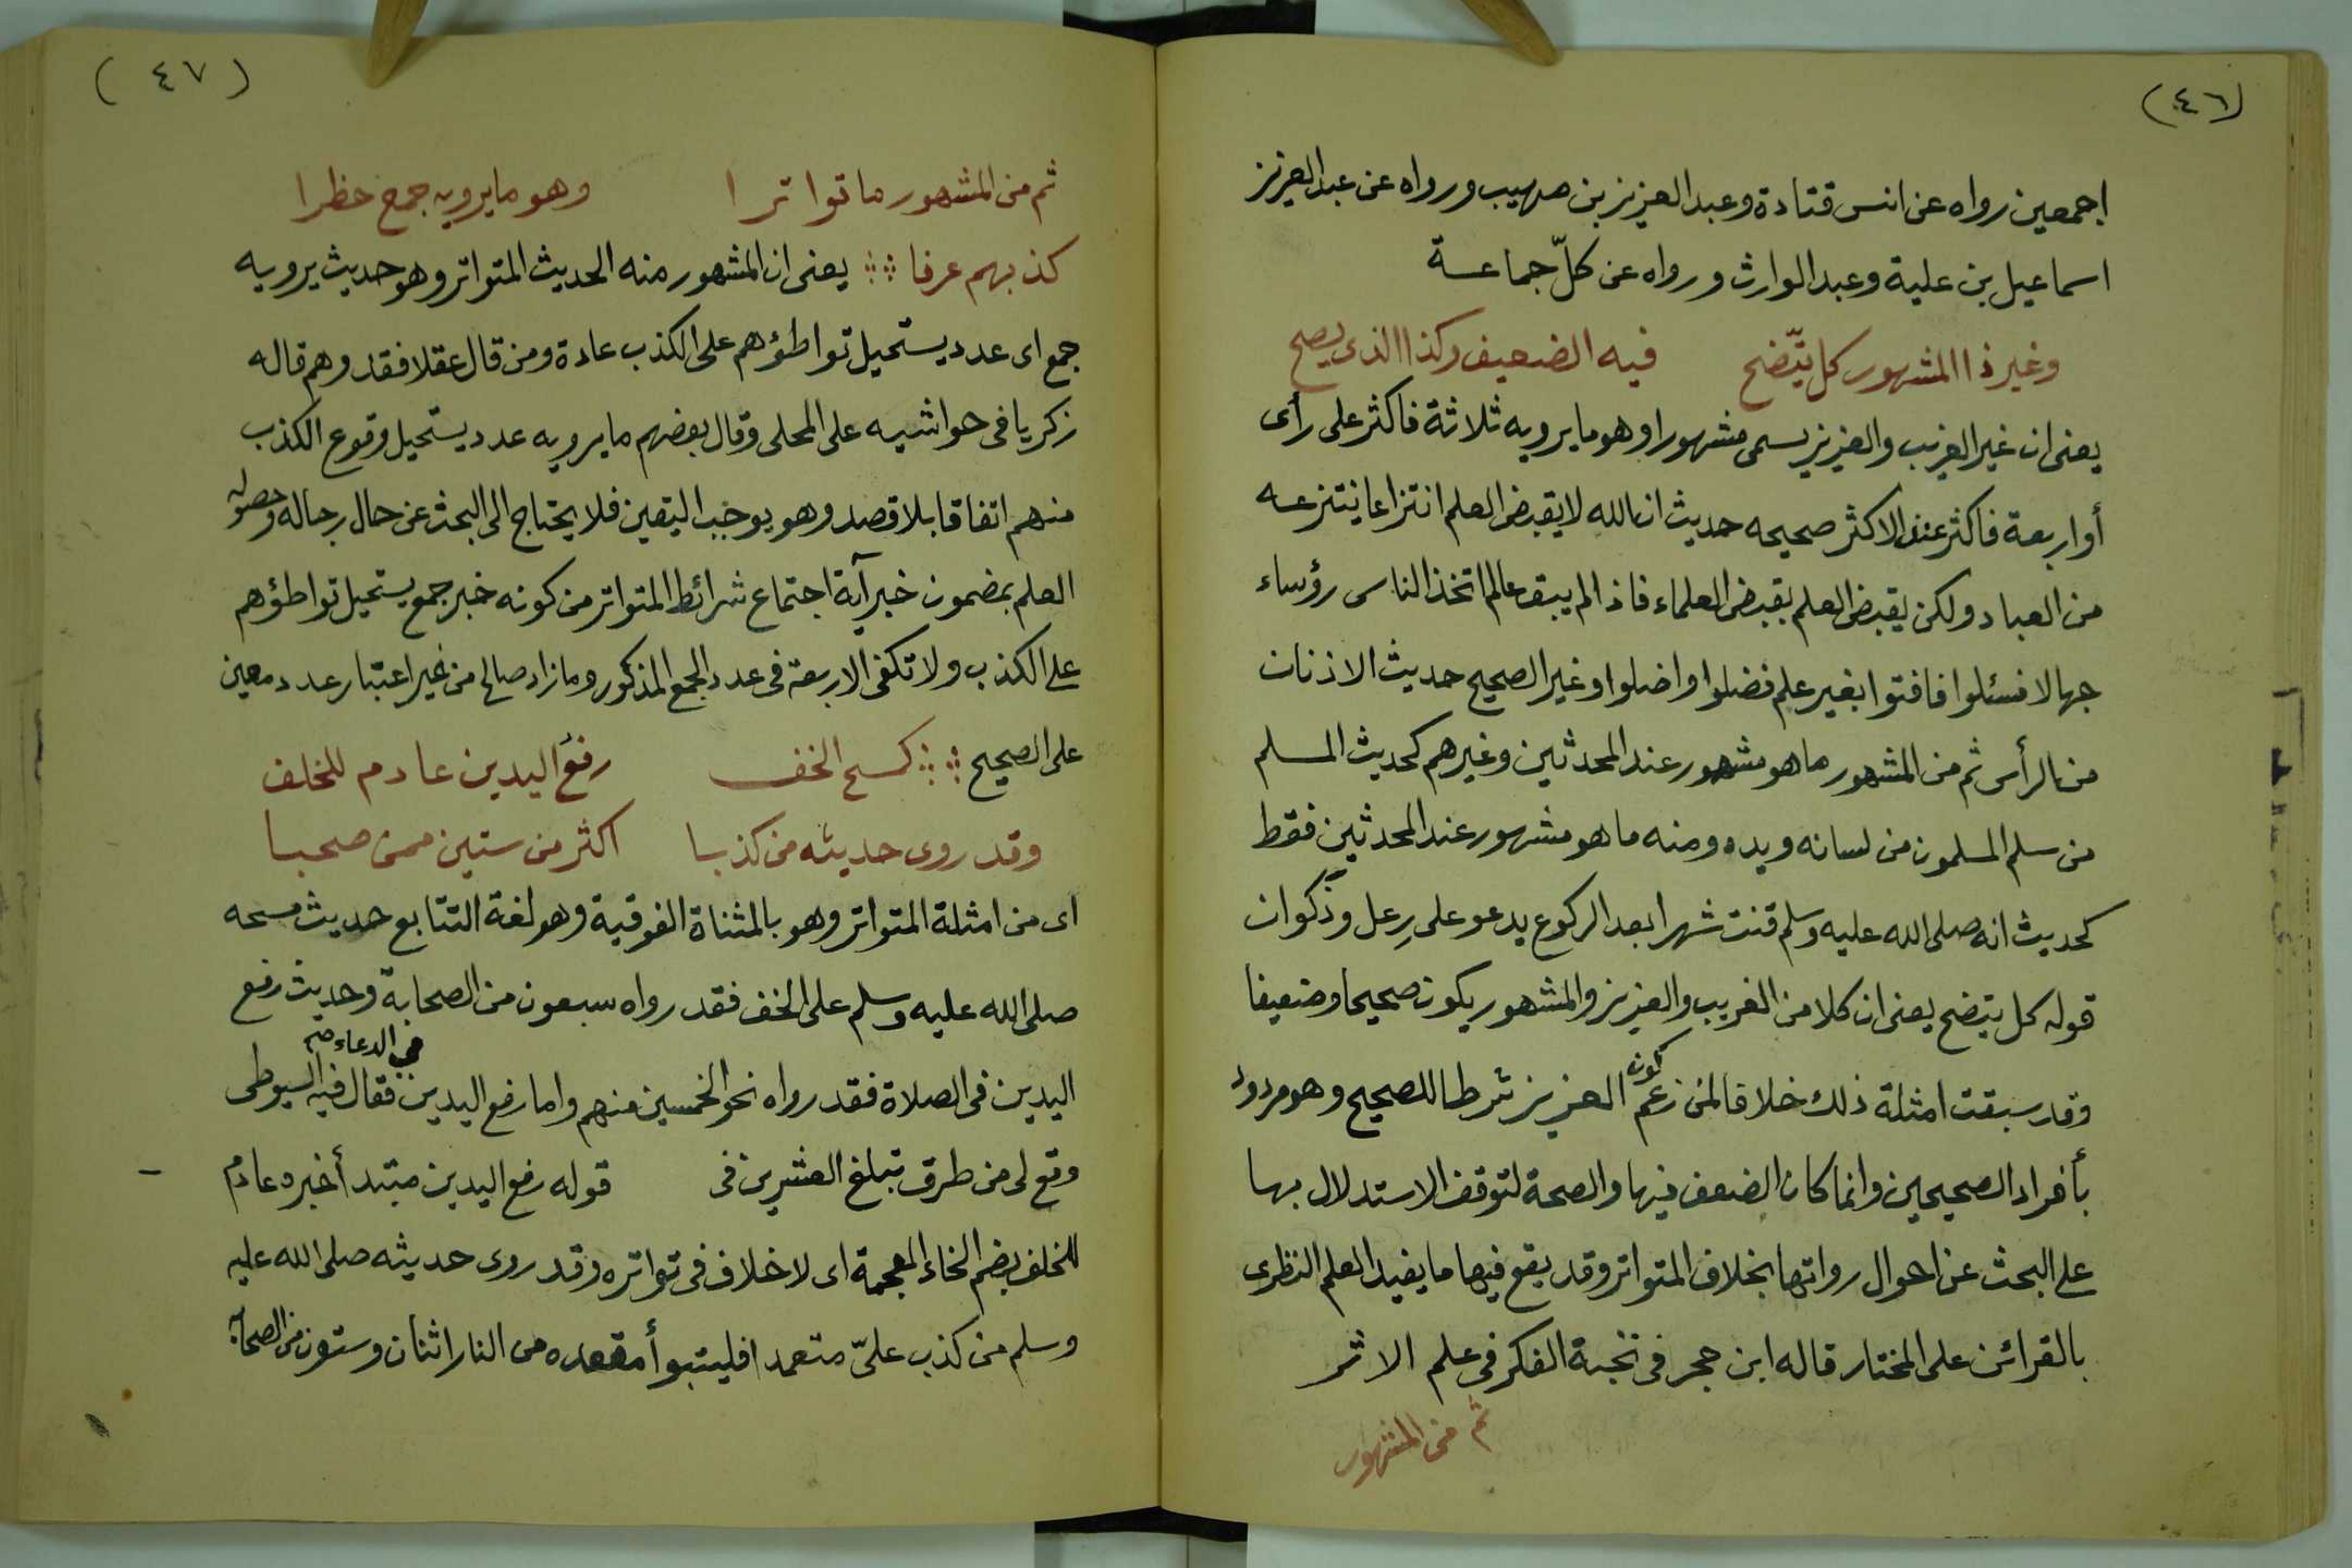 (٤٦)
اجمعين رواه عن انس قتادة وعبد العزيز بن صهيب ورواه عن عبد العزيز
اسماعيل بن علية وعبد الوارث ورواه عن كلّ جماعة
وغير ذا المشهور كل يتّضح فيه الضعيف وكذا الذى يصح
يعنى ان غير الغريب والعزيز يسمى مشهورا وهو ما يرويه ثلاثة فاكثر على رأى
أو اربعة فاكثر عند الاكثر صحيحه حديث ان الله لا يقبض العلم انتزاعا ينتزعه
من العباد ولكن يقبض العلم بقبض العلماء فاذا لم يبق عالم اتخذ الناس رؤساء
جهالا فسئلوا فافتوا بغير علم فضلوا واضلوا وغير الصحيح حديث الاذنان
من الرأس ثم من المشهور ما هو مشهور عند المحدثين وغيرهم كحديث المسلم
من سلم المسلمون من لسانه ويده ومنه ما هو مشهور عند المحدثين فقط
كحديث انه صلى الله عليه وسلم قنت شهرا بعد الركوع يدعو على رِعل وذكوان
قوله كل يتضح يعنى ان كلا من الغريب والعزيز والمشهور يكون صحيحا وضعيفا
وقد سبقت امثلة ذلك خلافا لمن زعم كون العزيز شرطا للصحيح وهو مردود
بأفراد الصحيحين وانما كان الضعف فيها والصحة لتوقف الاستدلال بها
على البحث عن احوال رواتها بخلاف المتواتر وقد يقع فيها ما يفيد العلم النظرى
بالقرائن على المختار قاله ابن حجر فى نخبة الفكر فى علم الاثر
ثم من المشهور
(٤٧)
ثم من المشهور ما تواترا وهو ما يرويه جمع حظرا
كذبهم عرفا يعنى ان المشهور منه الحديث المتواتر وهو حديث يرويه
جمع اى عدد يستحيل تواطؤهم على الكذب عادة ومن قال عقلا فقد وهم قاله
زكريا فى حواشيه على المحلى وقال بعضهم ما يرويه عدد يستحيل وقوع الكذب
منهم اتفاقا بلا قصد وهو يوجب اليقين فلا يحتاج الى البحث عن حال رجاله وحصول
العلم بمضمون خبر آية اجتماع شرائط المتواتر من كونه خبر جمع يستحيل تواطؤهم
على الكذب ولا تكفى الاربعة فى عدد الجمع المذكور وما زاد صالح من غير اعتبار عدد معين
على الصحيح كمسح الخف رفع اليدين عادم للخلف
وقد روى حديثه من كذبا اكثر من ستين ممن صحبا
اى من امثلة المتواتر وهو بالمثناة الفوقية وهو لغة التتابع حديث مسحه
صلى الله عليه وسلم على الخف فقد رواه سبعون من الصحابة وحديث رفع
اليدين فى الصلاة فقد رواه نحو الخمسين منهم واما رفع اليدين في الدعاء صح فقال فيه السيوطى
وقع لى من طرق تبلغ العشرين فى قوله رفع اليدين مبتدأ خبره عادم
للخلف بضم الخاء المعجمة اى لا خلاف فى تواتره وقد روى حديثه صلى الله عليه
وسلم من كذب علىّ متعمدا فليتبوأ مقعده من النار اثنان وستون من الصحابة